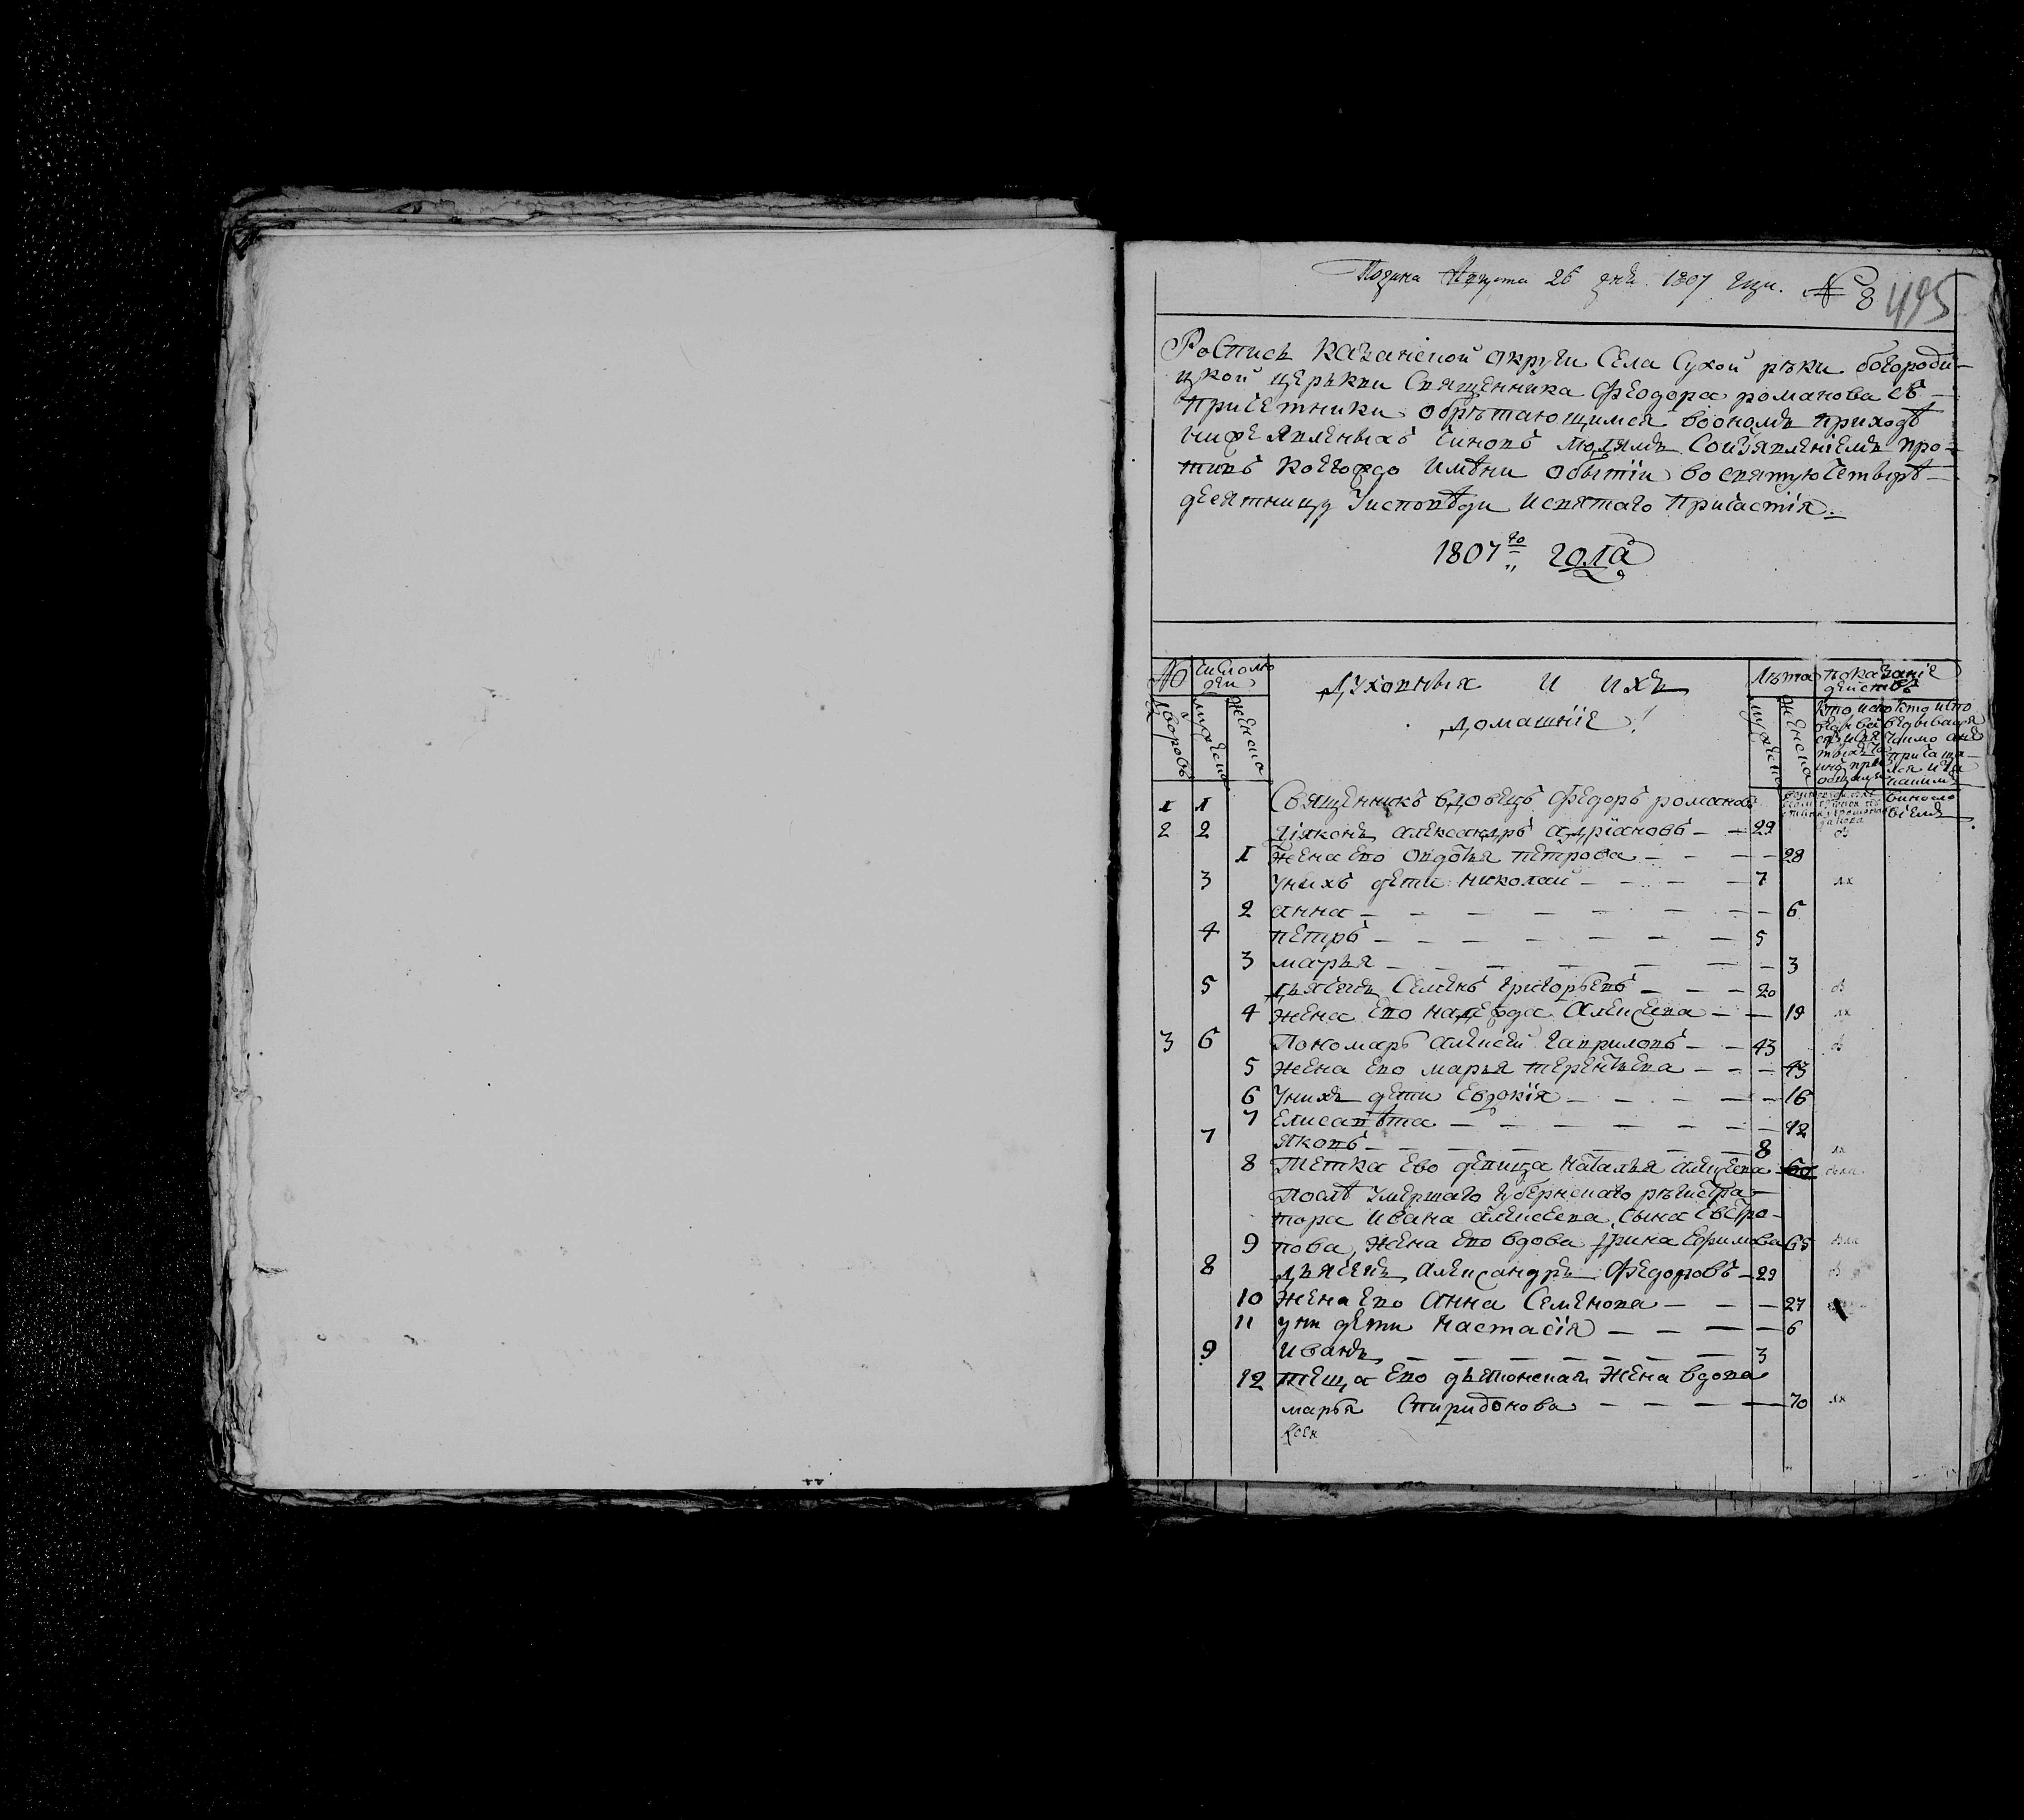 Подана Августа 26 дня 1807 года. № 8 495
Роспись казанской округи Села Сухой реки богороди-
цкой церькви Священника Феодора романова съ
причетники обретающимся воономъ приходѣ
нижеявленныхъ чиновъ людямъ Соизъявлениемъ про-
тивъ коегождо имѣни о бытіи во святую четыре-
десятницу Уисповѣди исвятаго причастія.
1807го года
№ число людей
Духовныя и ихъ Лѣта показаніе действъ
домашніе
дворовъ мужеска женска мужеска женска
1 1 Священникъ вдовецъ Федоръ романовъ
2 2 Діяконъ александръ адріановъ — 29
1 Жена ево Овдотья петрова — 28
3 Унихъ дети николай — 7
2 анна — 6
4 петръ — 5
3 марья — 3
5 Дьячекъ Семенъ григорьевъ — 20
4 Жена ево надежда Алексеева — 19
3 6 Пономарь алексей гавриловъ — 43
5 Жена ево марья терентьева — 43
6 Унихъ дети Евдокія — 16
7 Елисавѣта — 12
7 яковъ — 8
8 Тетка ево девица наталья алексеева 60
Послѣ Умершаго губернскаго регистра-
тора ивана алексеева сына Евстро-
9 пова, жена ево вдова Ирина Ефимова 65
8 Дьячекъ Александръ Федоровъ — 29
10 Жена ево Анна Семенова — 27
11 Уни дети настасія — 6
9 иванъ — 3
12 теща ево дьяконская жена вдова
марья Спиридонова — 70